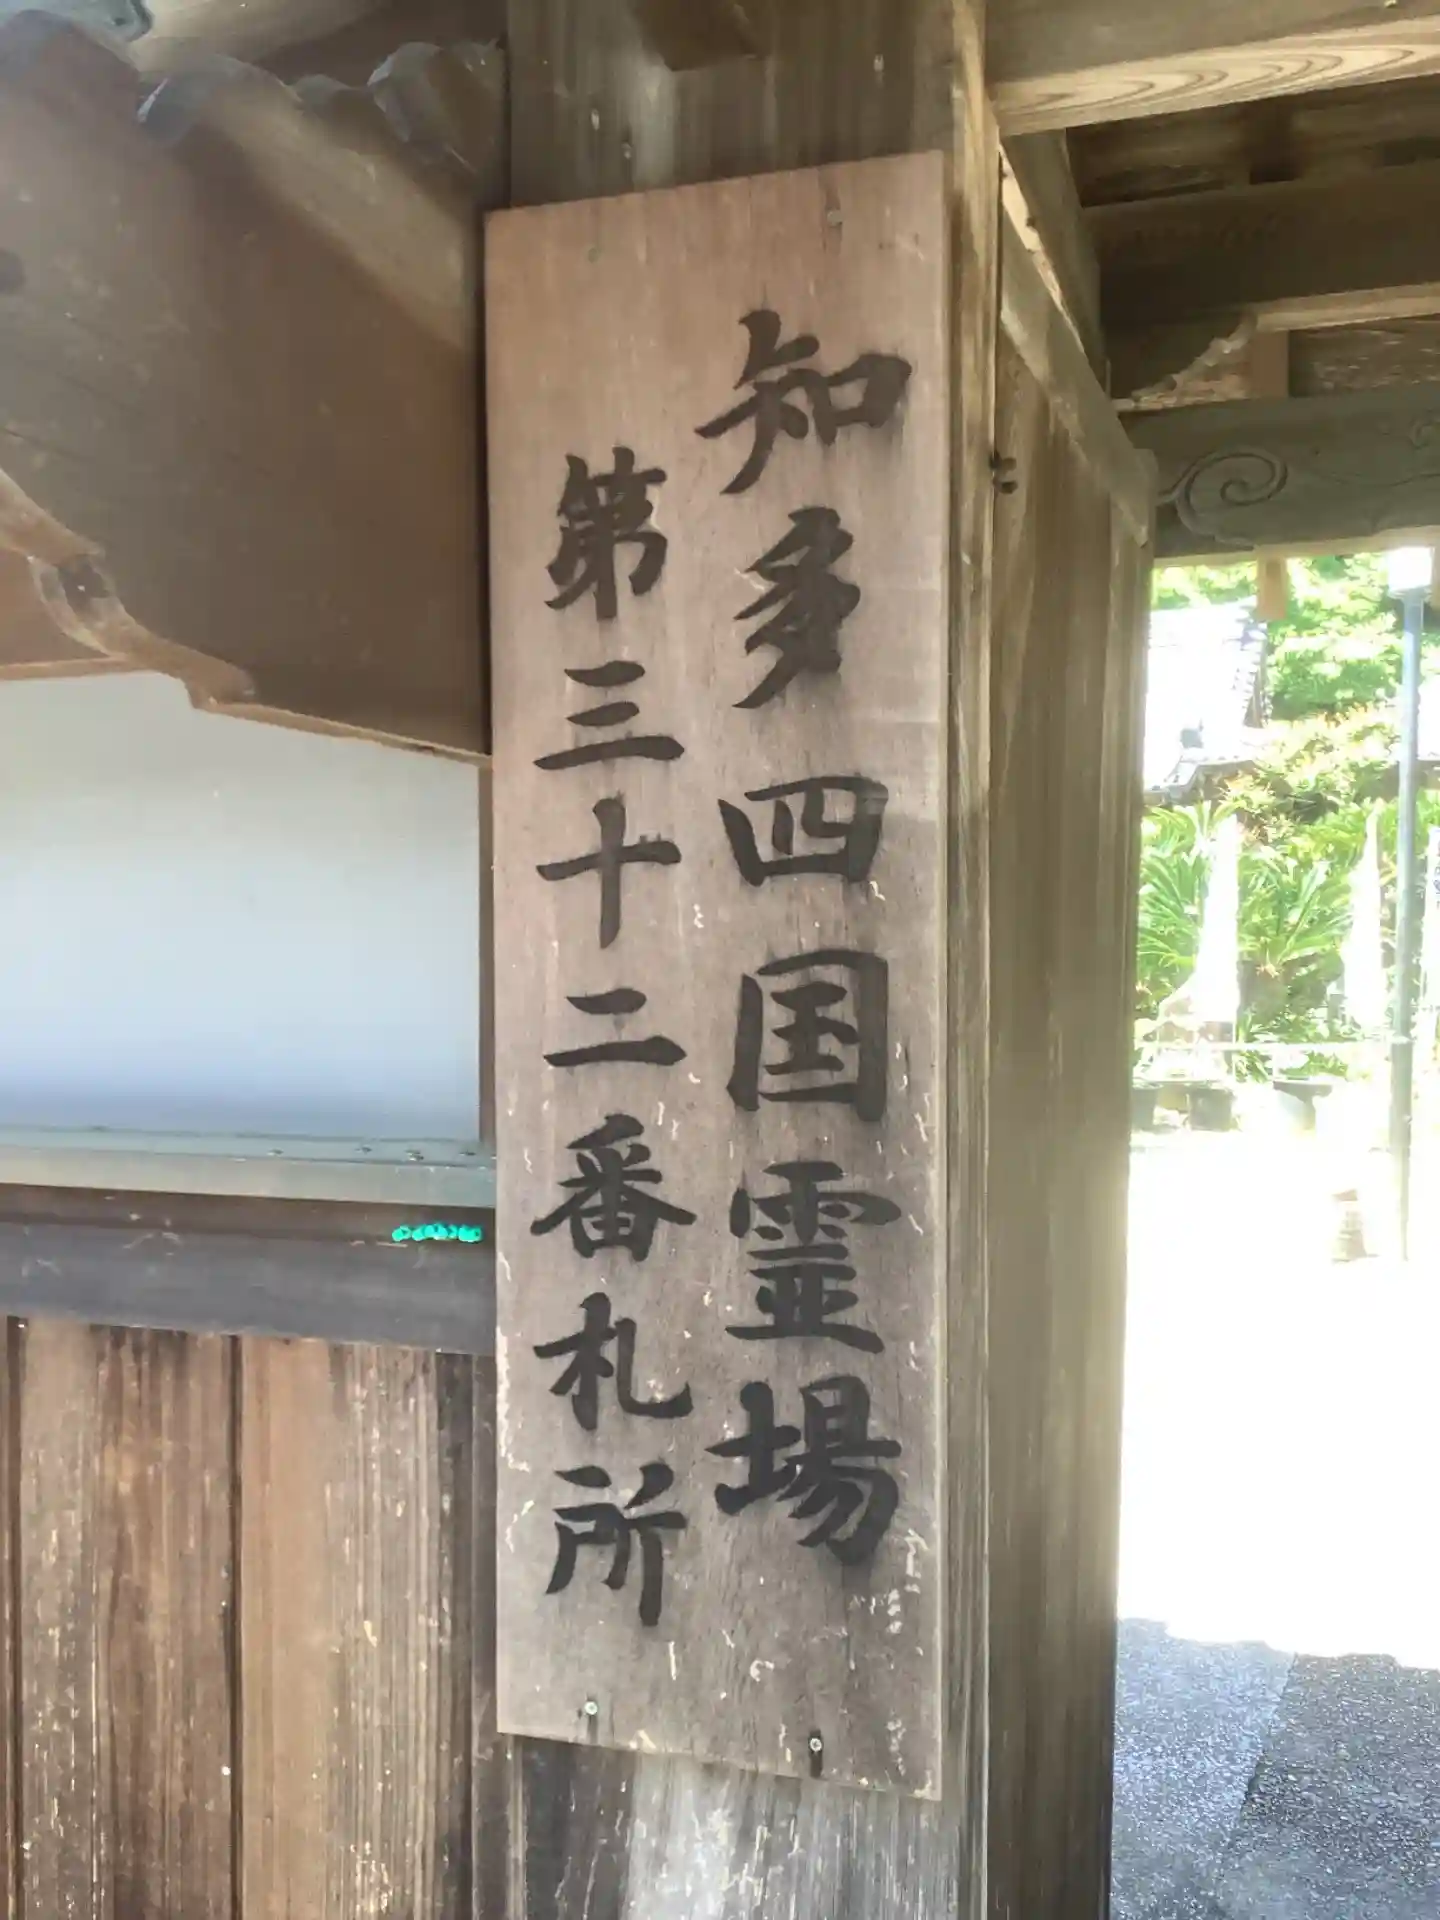 知多四国霊場
第三十二番札所